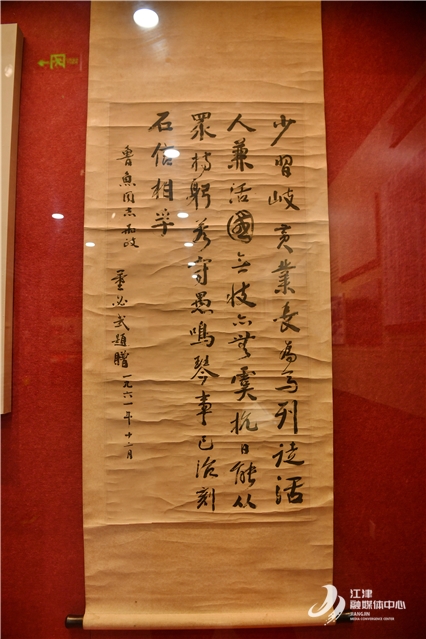 少習岐黄業長為馬列徒活
人兼活國技亦無虞抗日能從
眾持躬若守愚鳴琴事已治刻
石信相孚
魯魚同志政
董必武題贈一九六一年十二月
江津
融媒体中心
JIANGJIN
MEDIA CONVERGENCE CENTER